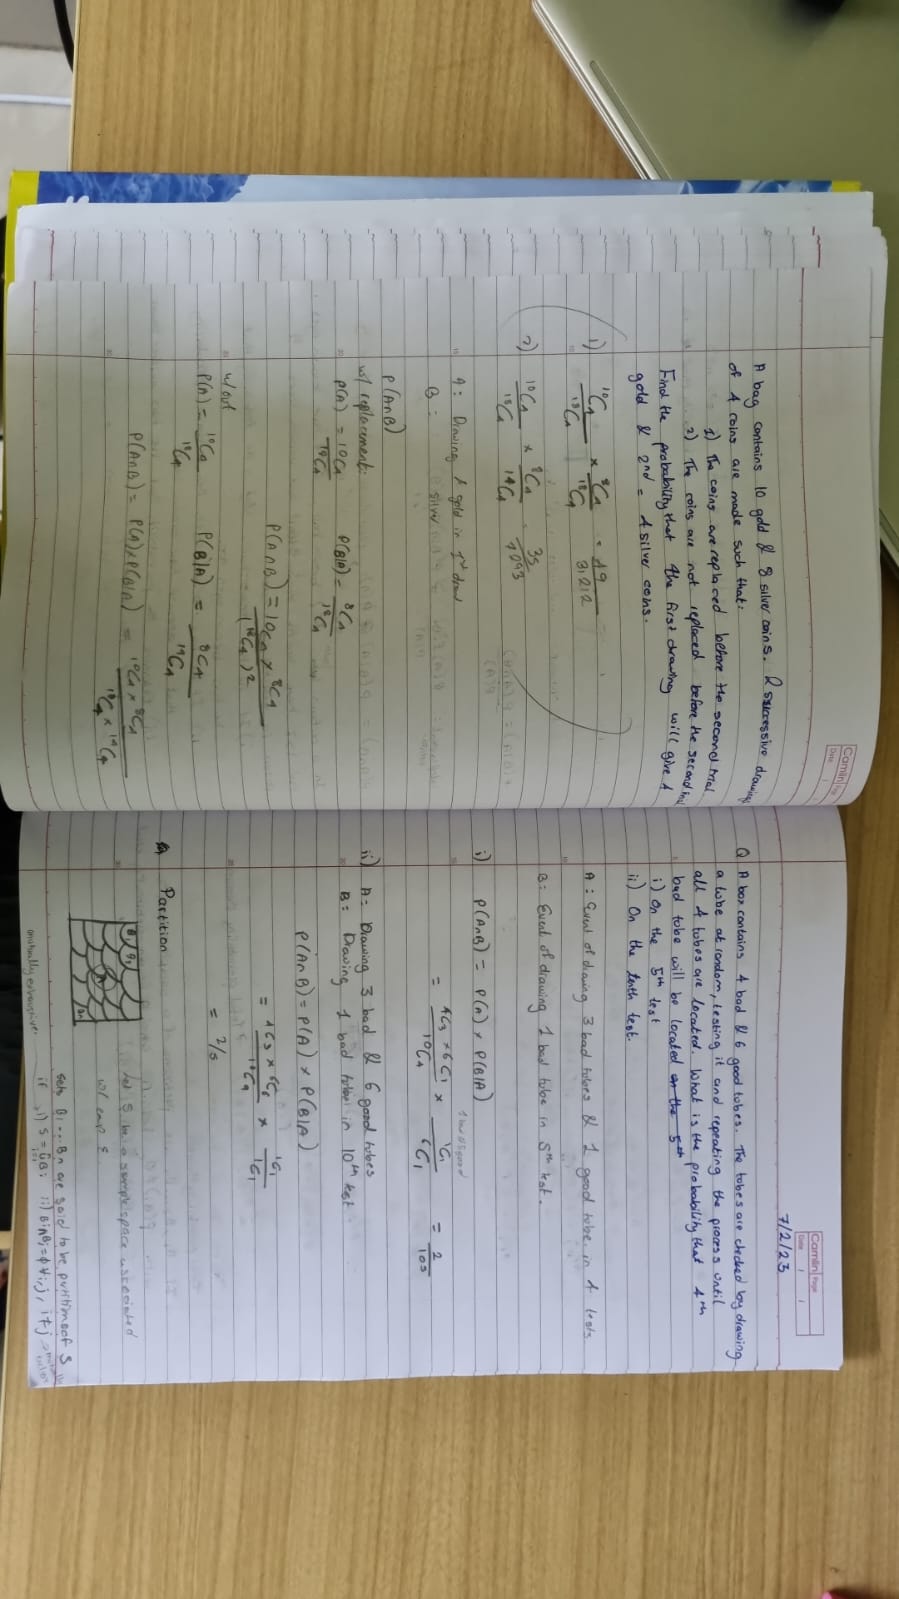 Camlin Page
Date / /
A bag contains 10 gold & 8 silver coins. 2 successive drawings
of 4 coins are made such that:
1) The coins are replaced before the second trial
2) The coins are not replaced before the second trial
Find the probability that the first drawing will give 4
gold & 2nd = 4 silver coins.
1) 10C4 / 18C4 × 8C4 / 18C4 = 49 / 31212
2) 10C4 / 18C4 × 8C4 / 14C4 = 35 / 7293
A: Drawing 4 gold in 1st draw
B: silver
P(A∩B)
w/ replacement:
P(A) = 10C4 / 18C4 P(B|A) = 8C4 / 18C4
P(A∩B) = 10C4 × 8C4 / (18C4)2
w/out
P(A) = 10C4 / 18C4 P(B|A) = 8C4 / 14C4
P(A∩B) = P(A)×P(B|A) = 10C4 × 8C4 / 18C4 × 14C4
Camlin Page
Date / /
7/2/23
Q A box contains 4 bad & 6 good tubes. The tubes are checked by drawing
a tube at random, testing it and repeating the process until
all 4 tubes are located. What is the probability that 4th
bad tube will be located on the 5th
i) On the 5th test
ii) On the tenth test.
A: Event of drawing 3 bad tubes & 1 good tube in 4 tests
B: Event of drawing 1 bad tube in 5th test.
i) P(A∩B) = P(A) × P(B|A)
= 4C3 × 6C1 / 10C4 × 1C1 / 6C1 = 2 / 105
ii) A: Drawing 3 bad & 6 good tubes
B: Drawing 1 bad tube in 10th test.
P(A∩B) = P(A) × P(B|A)
= 4C3 × 6C6 / 10C9 × 1C1 / 1C1
= 2/5
Partition
Let S be a sample space associated
w/ exp. E
sets B1 ... Bn are said to be partition of S
if i) S = ∪Bi ii) Bi∩Bj = φ ∀ i,j, i≠j
mutually exhaustive